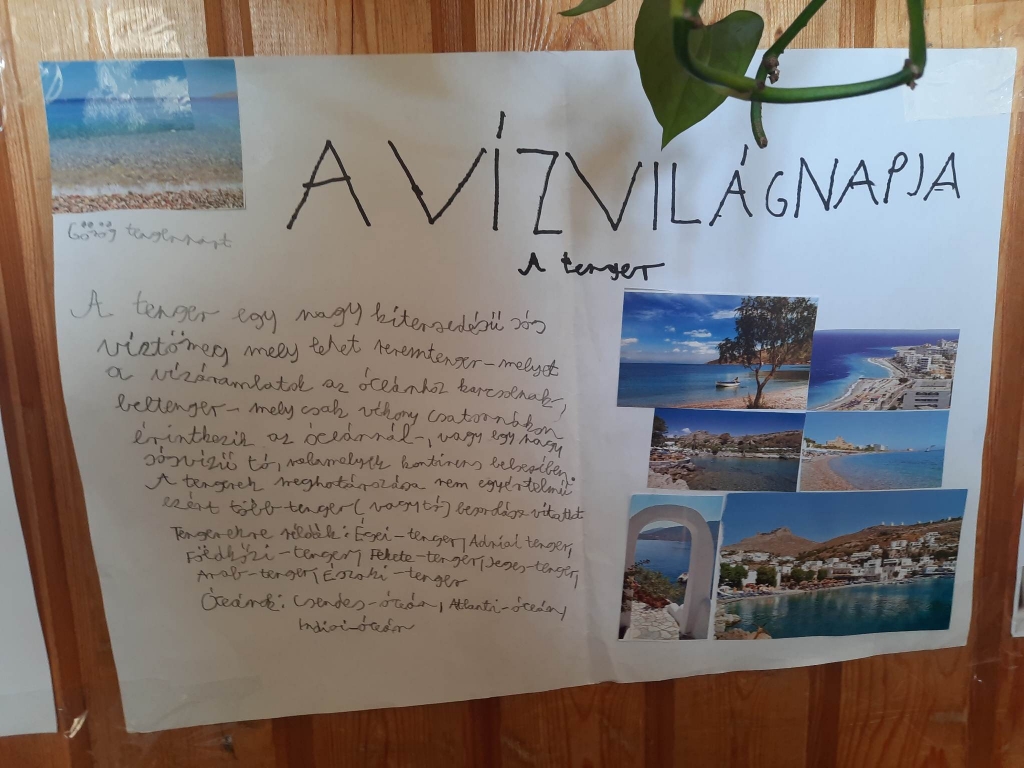 A VÍZ VILÁGNAPJA
A tenger
Görög tengerpart
A tenger egy nagy kiterjedésű sós
víztömeg mely lehet peremtenger-melyet
a vízáramlatok az óceánhoz kapcsolnak,
beltenger- mely csak vékony csatornákon
érintkezik az óceánnál-, vagy egy nagy
sósvízű tó, valamelyik kontinens belsejében.
A tengerek meghatározása nem egyértelmű
ezért több tenger( vagy tó) besorolása vitatott
Tengerekre példák: Égei-tenger, Adriai tenger,
Földközi-tenger, Fekete-tenger, Jeges-tenger,
Arab-tenger, Északi-tenger
Óceánok: Csendes-óceán, Atlanti-óceán,
Indiai-óceán